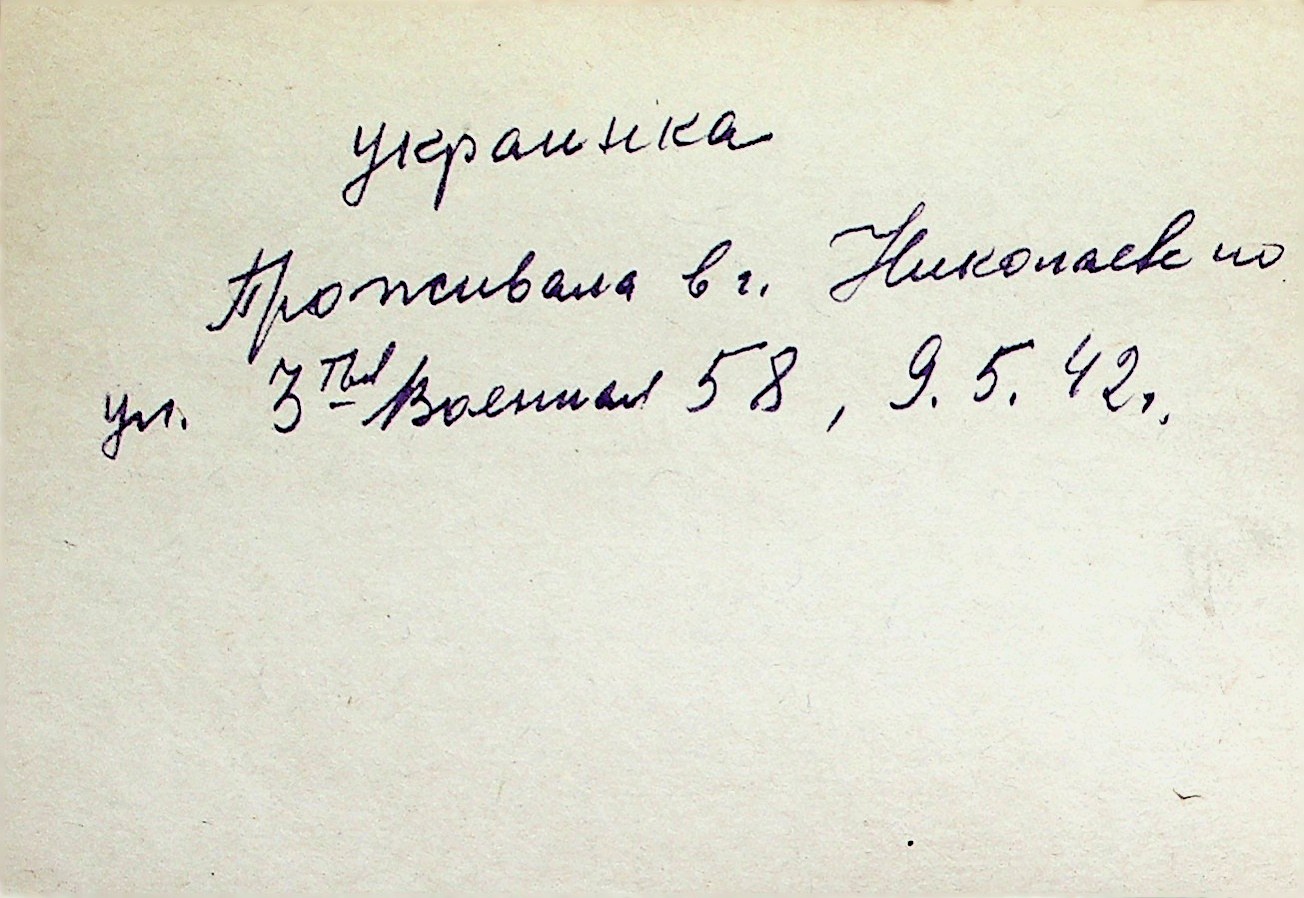 украинка
Проживала в г. Николаеве по
ул. 3тья Военная 58, 9.5.42г.